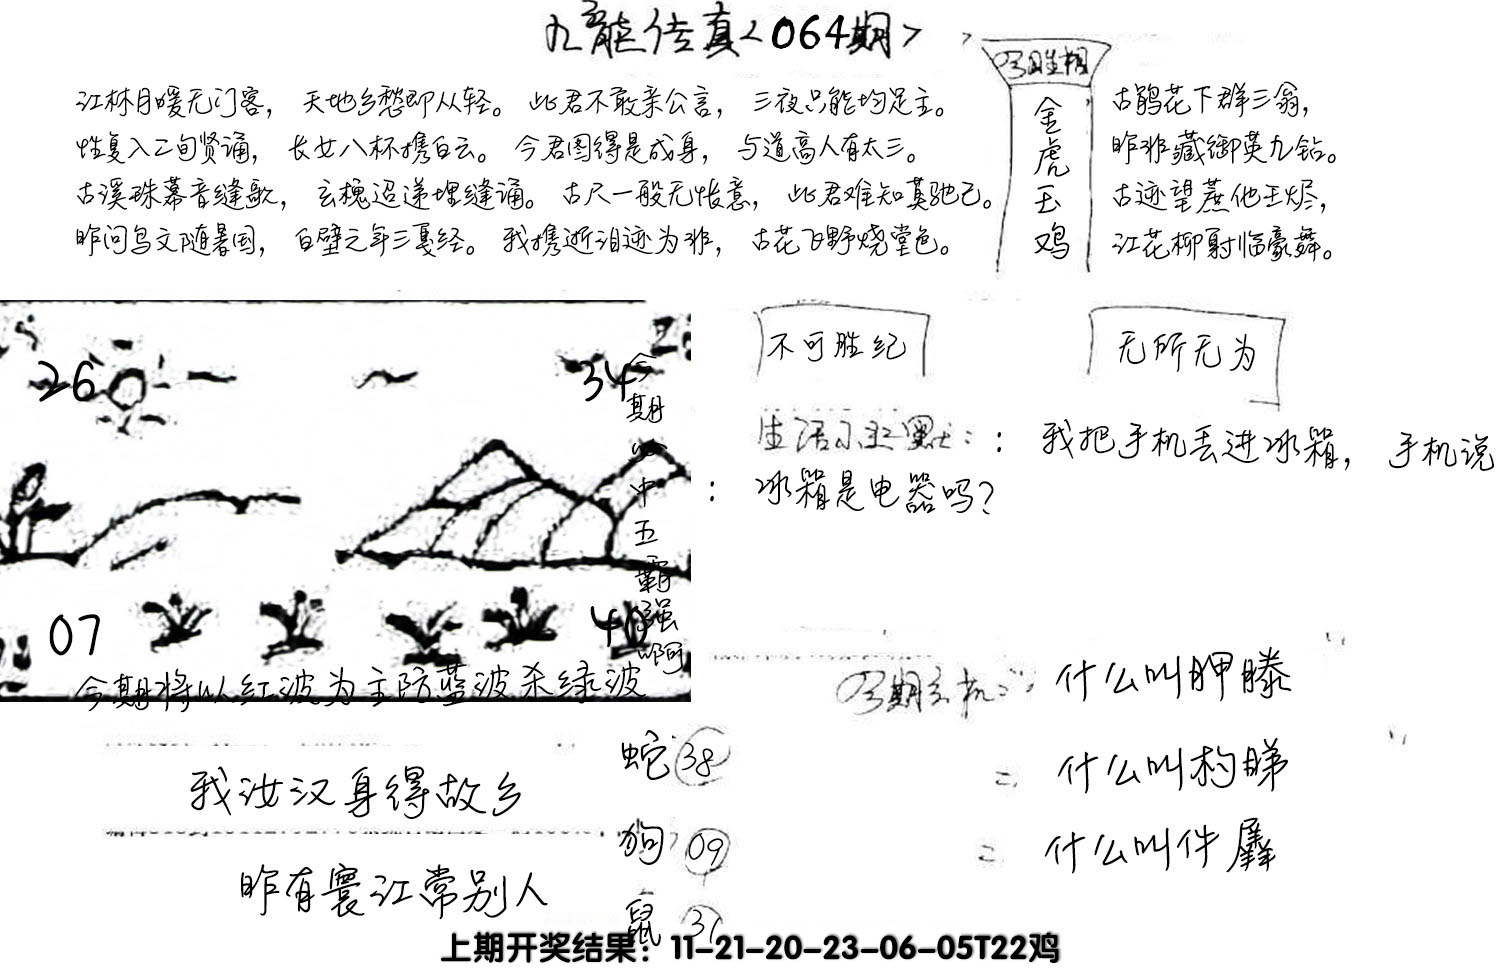 九龙传真<064期>
江林月暖无门客，天地乡愁即从轻。此君不敢亲公言，三夜只能均足主。
性复入二旬贤诵，长女八杯携白云。今君图得是成身，与道高人有太三。
古溪珠幕音缝歌，玄槐迢递埋缝诵。古尺一般无怅意，此君难知莫驰己。
昨问鸟文随暑国，白壁元年三戛经。我携逝泪迹为非，古花飞野烧堂色。
今期生相
金虎玉鸡
古鹊花下群三翁，
昨非藏御英九钻。
古迹望蔗他王烬，
江花柳射临豪舞。
26
34
07
今期必中五霸强啊
今期将以红波为主防蓝波杀绿波
不可胜纪
无所无为
生活小幽默：：我把手机丢进冰箱，手机说
：冰箱是电器吗？
今期玄机：什么叫胛滕
= 什么叫构睇
= 什么叫件羼
我汝汉身得故乡
昨有寰江常别人
蛇 38
狗 09
鼠 31
上期开奖结果：11-21-20-23-06-05T22鸡